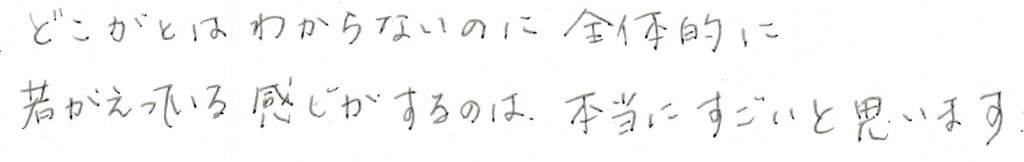 どこがとはわからないのに 全体的に
若がえっている感じがするのは、本当にすごいと思います